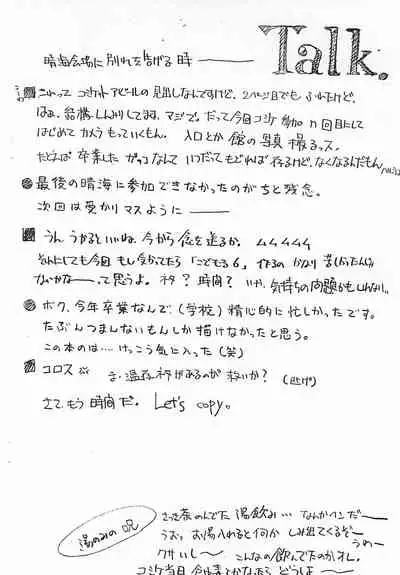 Talk.
晴海会場に別れを告げる時 ――
これってコミケットアピールの見出しなんですけど、2ページ目でもふれたけど、
はぁ、結構しんみりしてます、マジで。だって今回コミケ参加n回目にして
はじめてカメラもっていくもん。入口とか館の写真撮るっス。
たとえば卒業したガッコなんていつだってもどれば存るけど、なくなるんだもん
●最後の晴海に参加できなかったのがちと残念。
次回は受かりマスように ――
うん、うかるといいね。今から念を送るか。ムムムムム
それにしても今回もし受かってたら「こどもる6」作るのかなり苦しかったんじゃ
ないかな―って思うよ。ネタ?時間? いや、気持ちの問題かもしんない。
●ボク、今年卒業なんで、(学校)精心的に忙しかったです。
たぶんつまんないもんしか描けなかったと思う。
この本のは…けっこう気に入った(笑)
コロス ま、温存ネタがあるのが救いか? (逃げ)
さて、もう時間だ。 Let's copy。
湯のみの呪
さっき茶のんでた湯飲み… なんかヘンだ―
うぷ。お湯入れると何かしみ出てくるぞ― うわ―
クサいし~ こんなの飲んでたのかオレ。
コミケ当日